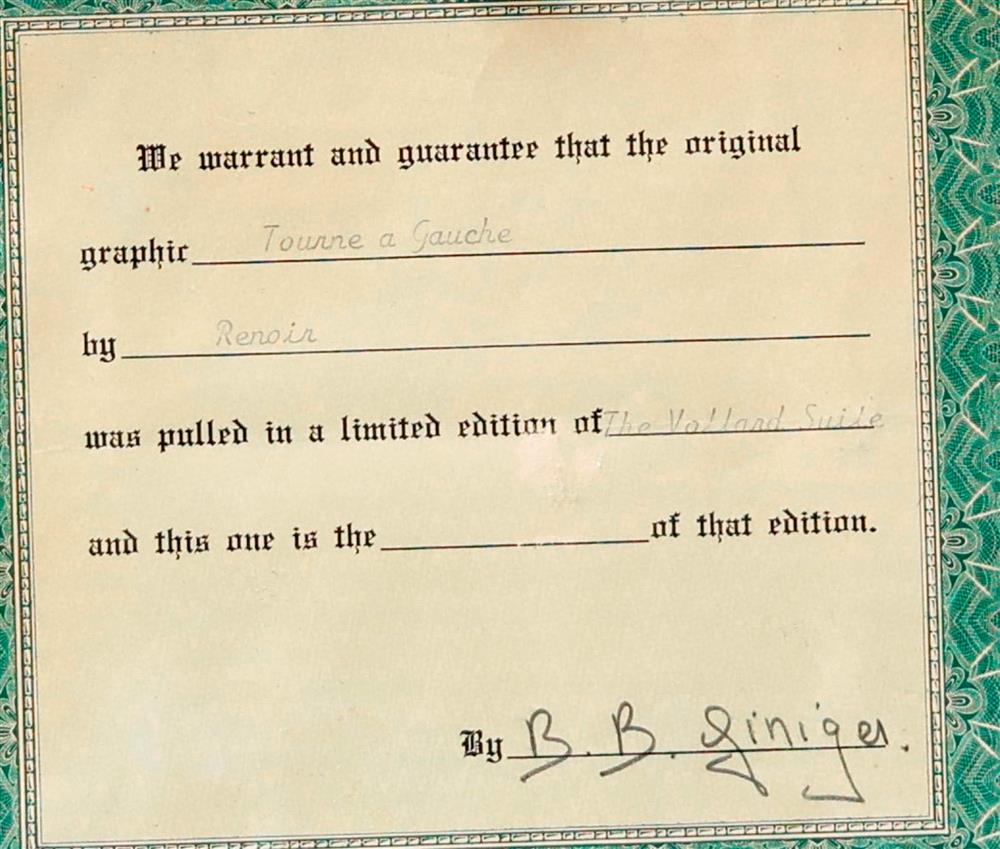 We warrant and guarantee that the original
graphic Tourne a Gauche
by Renoir
was pulled in a limited edition of The Vollard Suite
and this one is the of that edition.
By B. B. Giniger.